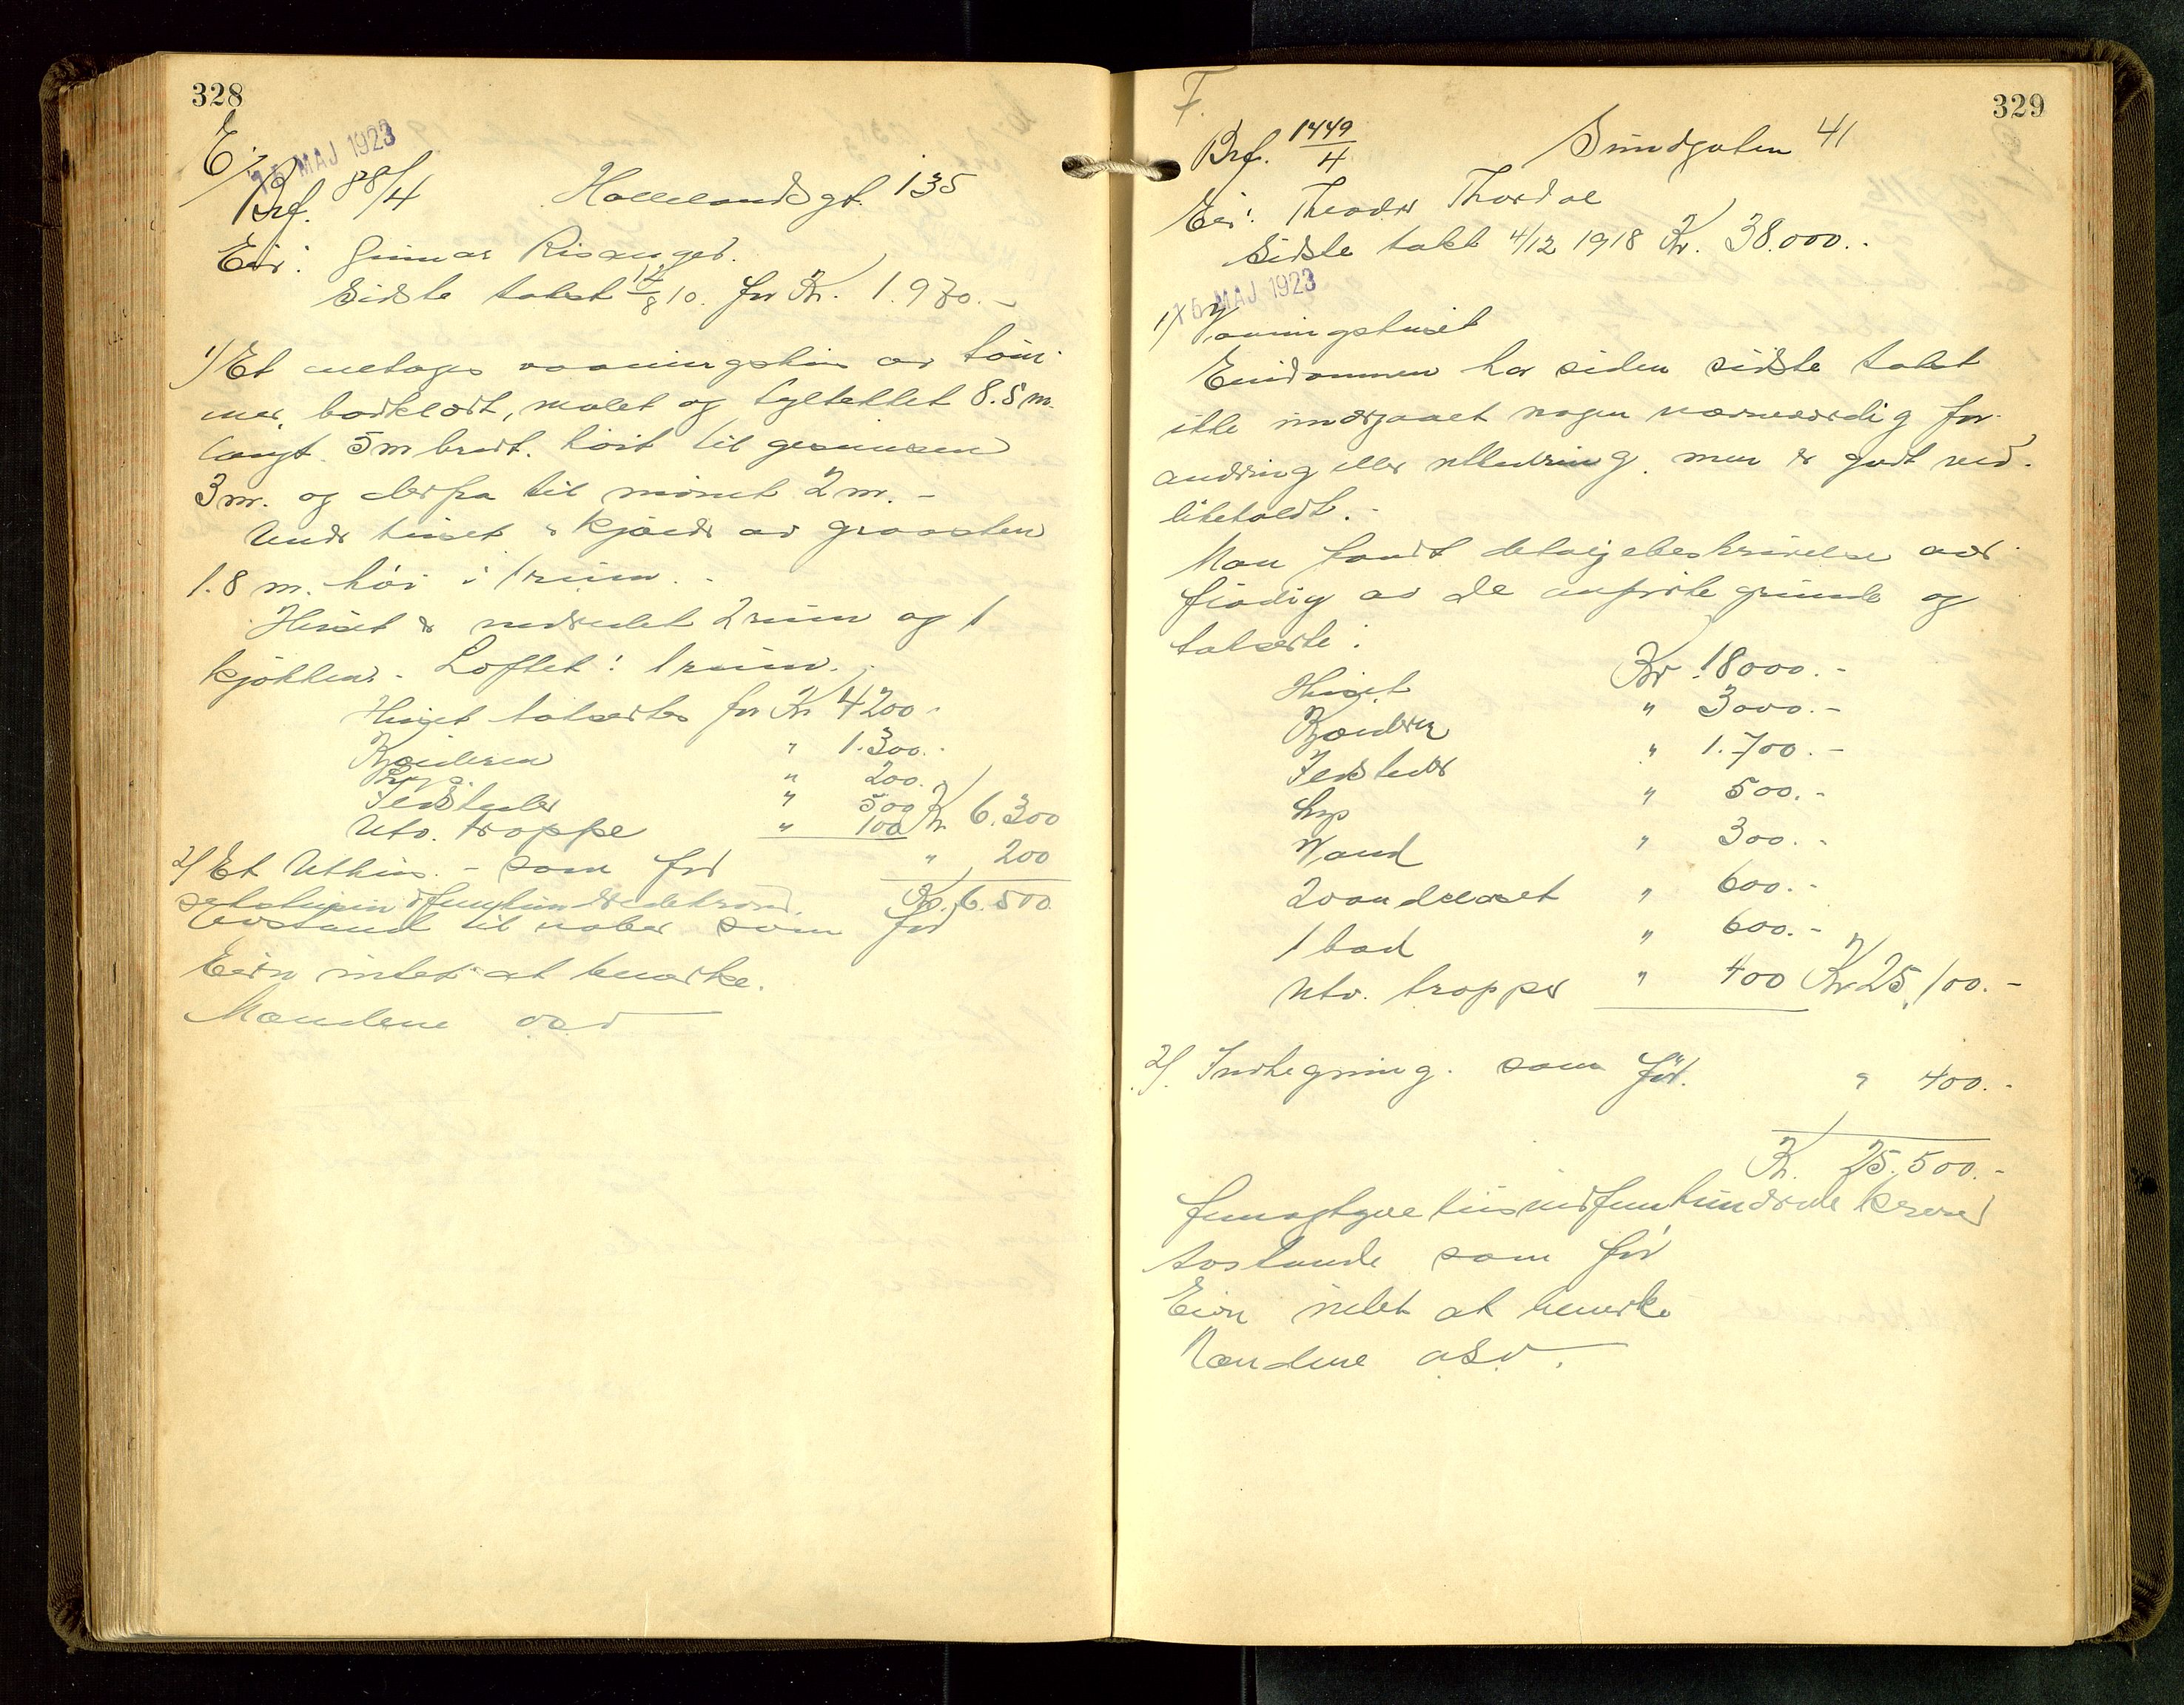 328
E.
15 MAJ 1923
Brf. 88/4 Hallelandsgt. 135
Eier: Gunnar Risanger.
Sidste takst 12/8 10. for Kr. 1.930.-
1) Et enetages vaaningshus av töm-
mer, bordklædt, malet og tegltekket 8.5 m.
langt. 5 m bredt. höit til gesimsen
3 m. og derfra til mönet 2 m. -
Under huset er kjælder av graasten
1.8 m. höi i 1 rum. -
Huset er indredet 2 rum og 1
kjökken. - Loftet: 1 rum. -
Huset takseres for Kr 4200 -
Kjælderen " 1.300. -
Lys. " 200. -
Ildsteder " 500
Utv. trappe " 100 Kr. 6.300
2) Et Uthus. - som för " 200
Kr. 6.500
sekstusindfemhundredekroner.
Avstand til naboer som för
Eieren intet at bemærke.
Mændene osv
F.
329
Brf. 1449/4 Sundgaten 41
Eier: Theodor Thordal
Sidste takst 4/12 1918 Kr. 38.000. -
15 MAJ 1923
1) Vaaningshuset
Eiendommen har siden sidste takst
ikke undergaaet nogen nævneværdig for-
andring eller utbedring. men er godt ved-
likeholdt. -
Man fandt detaljebeskrivelse over-
flödig av de anförte grunde og
takserte:
Huset Kr. 18000. -
Kjælderen " 3000. -
Ildsteder " 1.700. -
Lys " 500. -
Vand " 300. -
2 vandkloset " 600. -
1 bad " 600. -
Utv. trapper " 400 Kr 25.100. -
2) Indhegning. som för. " 400. -
Kr. 25.500. -
femogtyve tusindfemhundrede kroner
Avstande som för
Eieren intet at bemerke
Mændene osv.